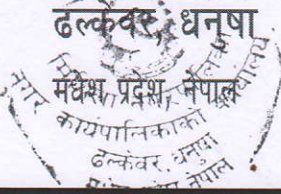 ढल्केवर, धनुषा
मधेश प्रदेश, नेपाल
नगर कार्यपालिकाको कार्यालय
ढल्केवर, धनुषा
नेपाल